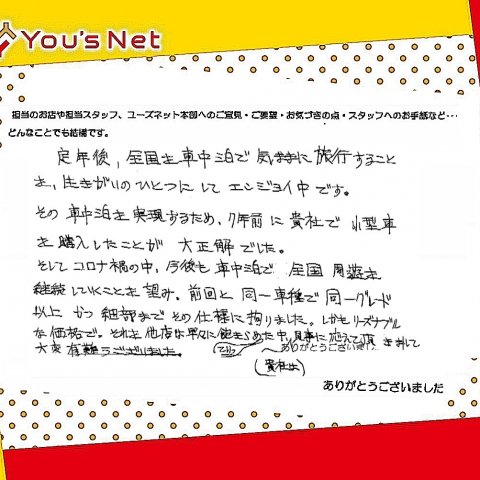 You's Net
担当のお店や担当スタッフ、ユーズネット本部へのご意見・ご要望・お気づきの点・スタッフへのお手紙など・・・
どんなことでも結構です。
定年後、全国を車中泊で気ままに旅行すること
を、生きがいのひとつにしてエンジョイ中です。
その車中泊を実現するため、7年前に貴社で小型車
を購入したことが大正解でした。
そしてコロナ禍の中、今後も車中泊で全国周遊を
継続していくことを望み、前回と同一車種で同一グレード
以上かつ細部までその仕様に拘りました。しかもリーズナブル
な価格で。それを他店は早々に あきらめた中、見事に応えて頂きまして
大変有難うございました。
ありがとうございま
(貴社は)
ありがとうございました